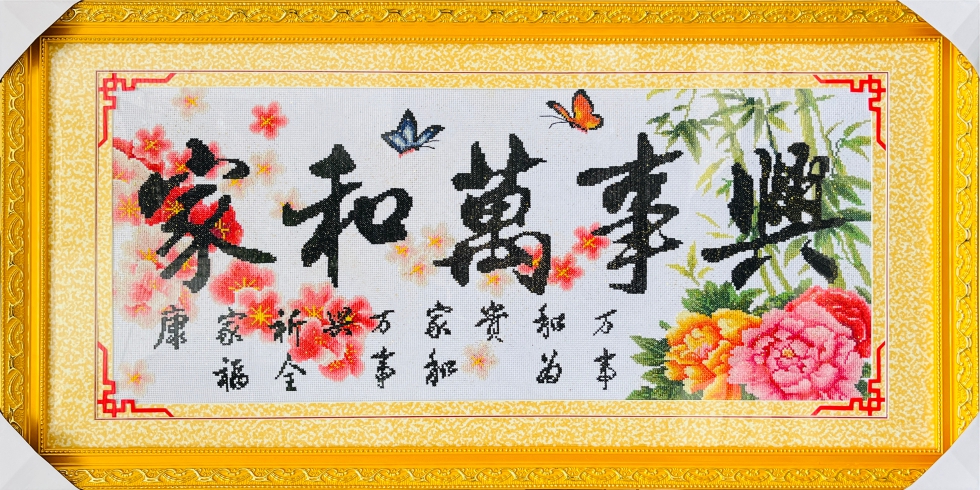 家和萬事興
万事
和为
贵
家和
万事
興
祈全
家福
康